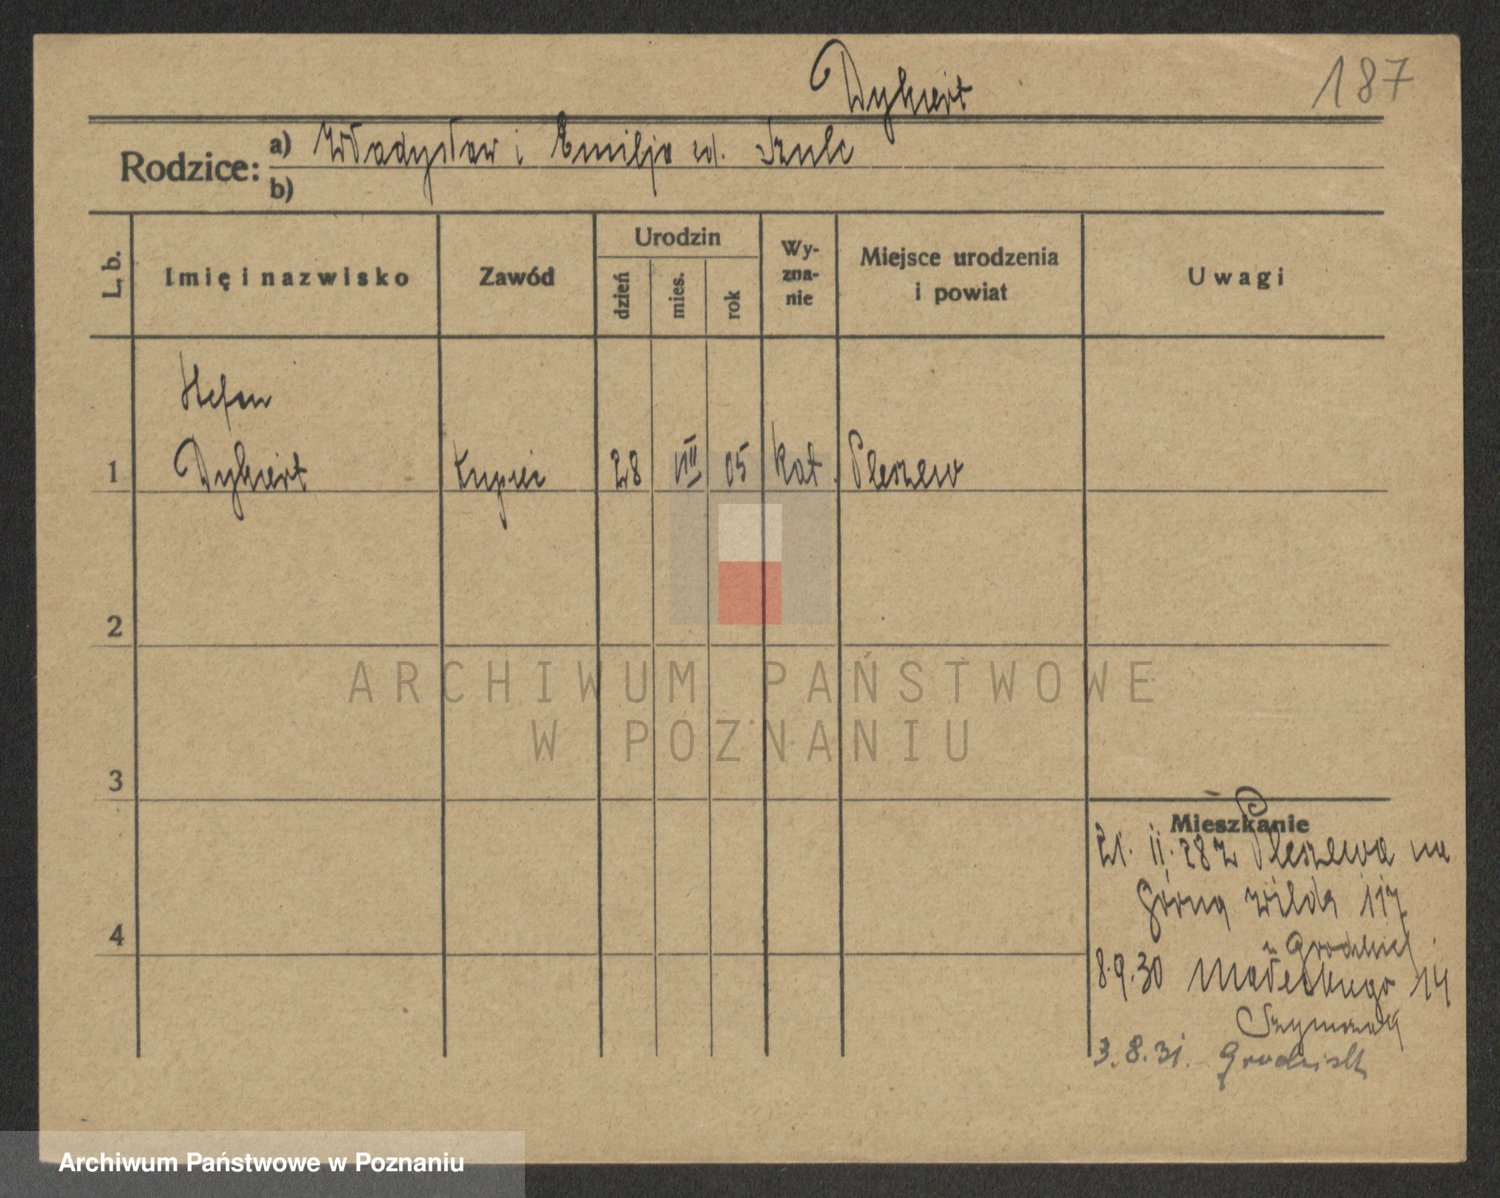 Dykiert
187
Rodzice:
a) Władysław i Emilja ed. Szulc
b)
L. b.
Imię i nazwisko
Zawód
Urodzin
dzień
mies.
rok
Wy-
zna-
nie
Miejsce urodzenia
i powiat
Uwagi
Stefan
1 Dykiert kupiec 28 VIII 05 kat. Pleszew
2
3
4
Mieszkanie
21. II. 28 z Pleszewa na
Górną Wildę 117
8.9.30 Małeckiego 14
Szymczak
3.8.31. Grodzisk
ARCHIWUM PAŃSTWOWE
W POZNANIU
Archiwum Państwowe w Poznaniu